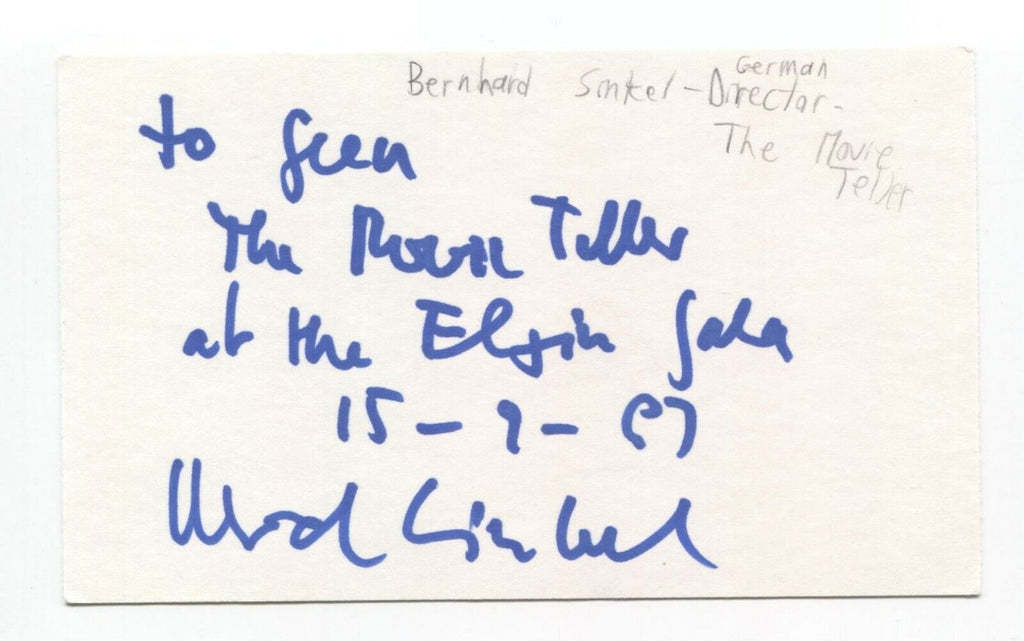 Bernhard Sinkel - German
Director -
The Movie
Teller
to
The Movie Teller
at the Elgin Gala
15 - 9 -
Sinkel